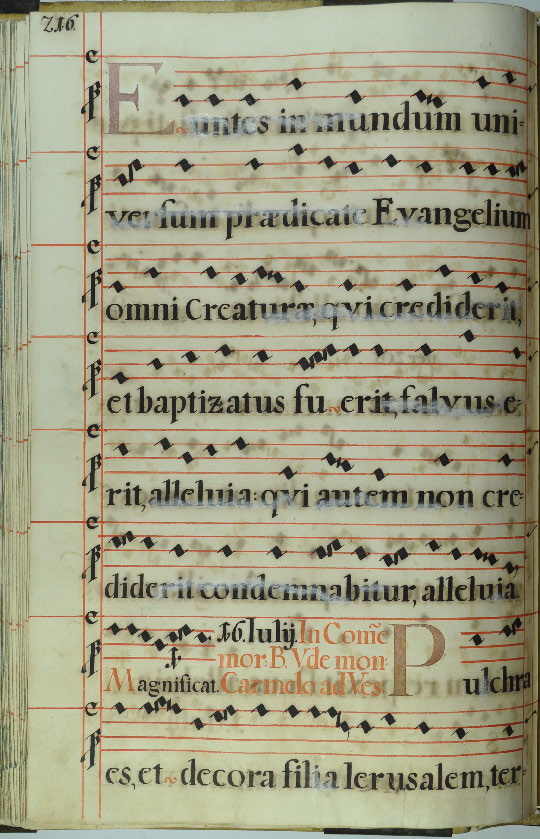 216.
Euntes in mundum uni-
versum prædicate Evangelium
omni Creaturæ, qvi crediderit,
et baptizatus fu erit, salvus e-
rit, alleluia: qvi autem non cre-
diderit condemnabitur, alleluia.
16. Iulij. In Com̃e
mor. B. V. de mon-
Magnificat. Carmelo ad Ves. Pulchra
es, et decora filia Ierusalem, ter-